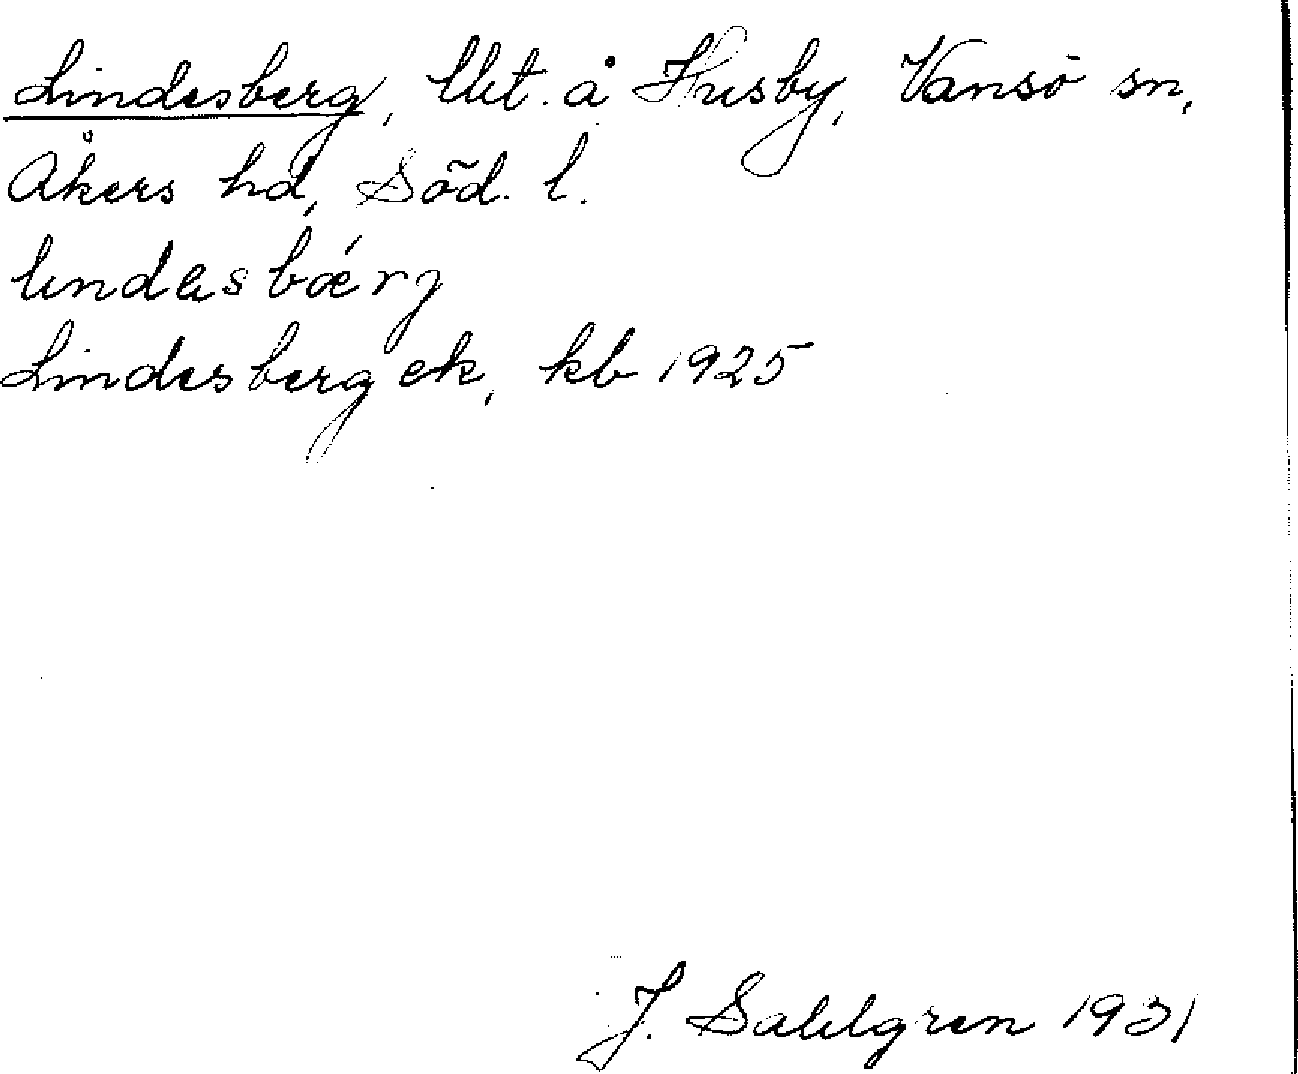 Lindesberg, Utt. å Husby, Vansö sn,
Åkers hd, Söd. l.
lindesbǽrj
Lindesberg ek, kb 1925
J. Sahlgren 1931